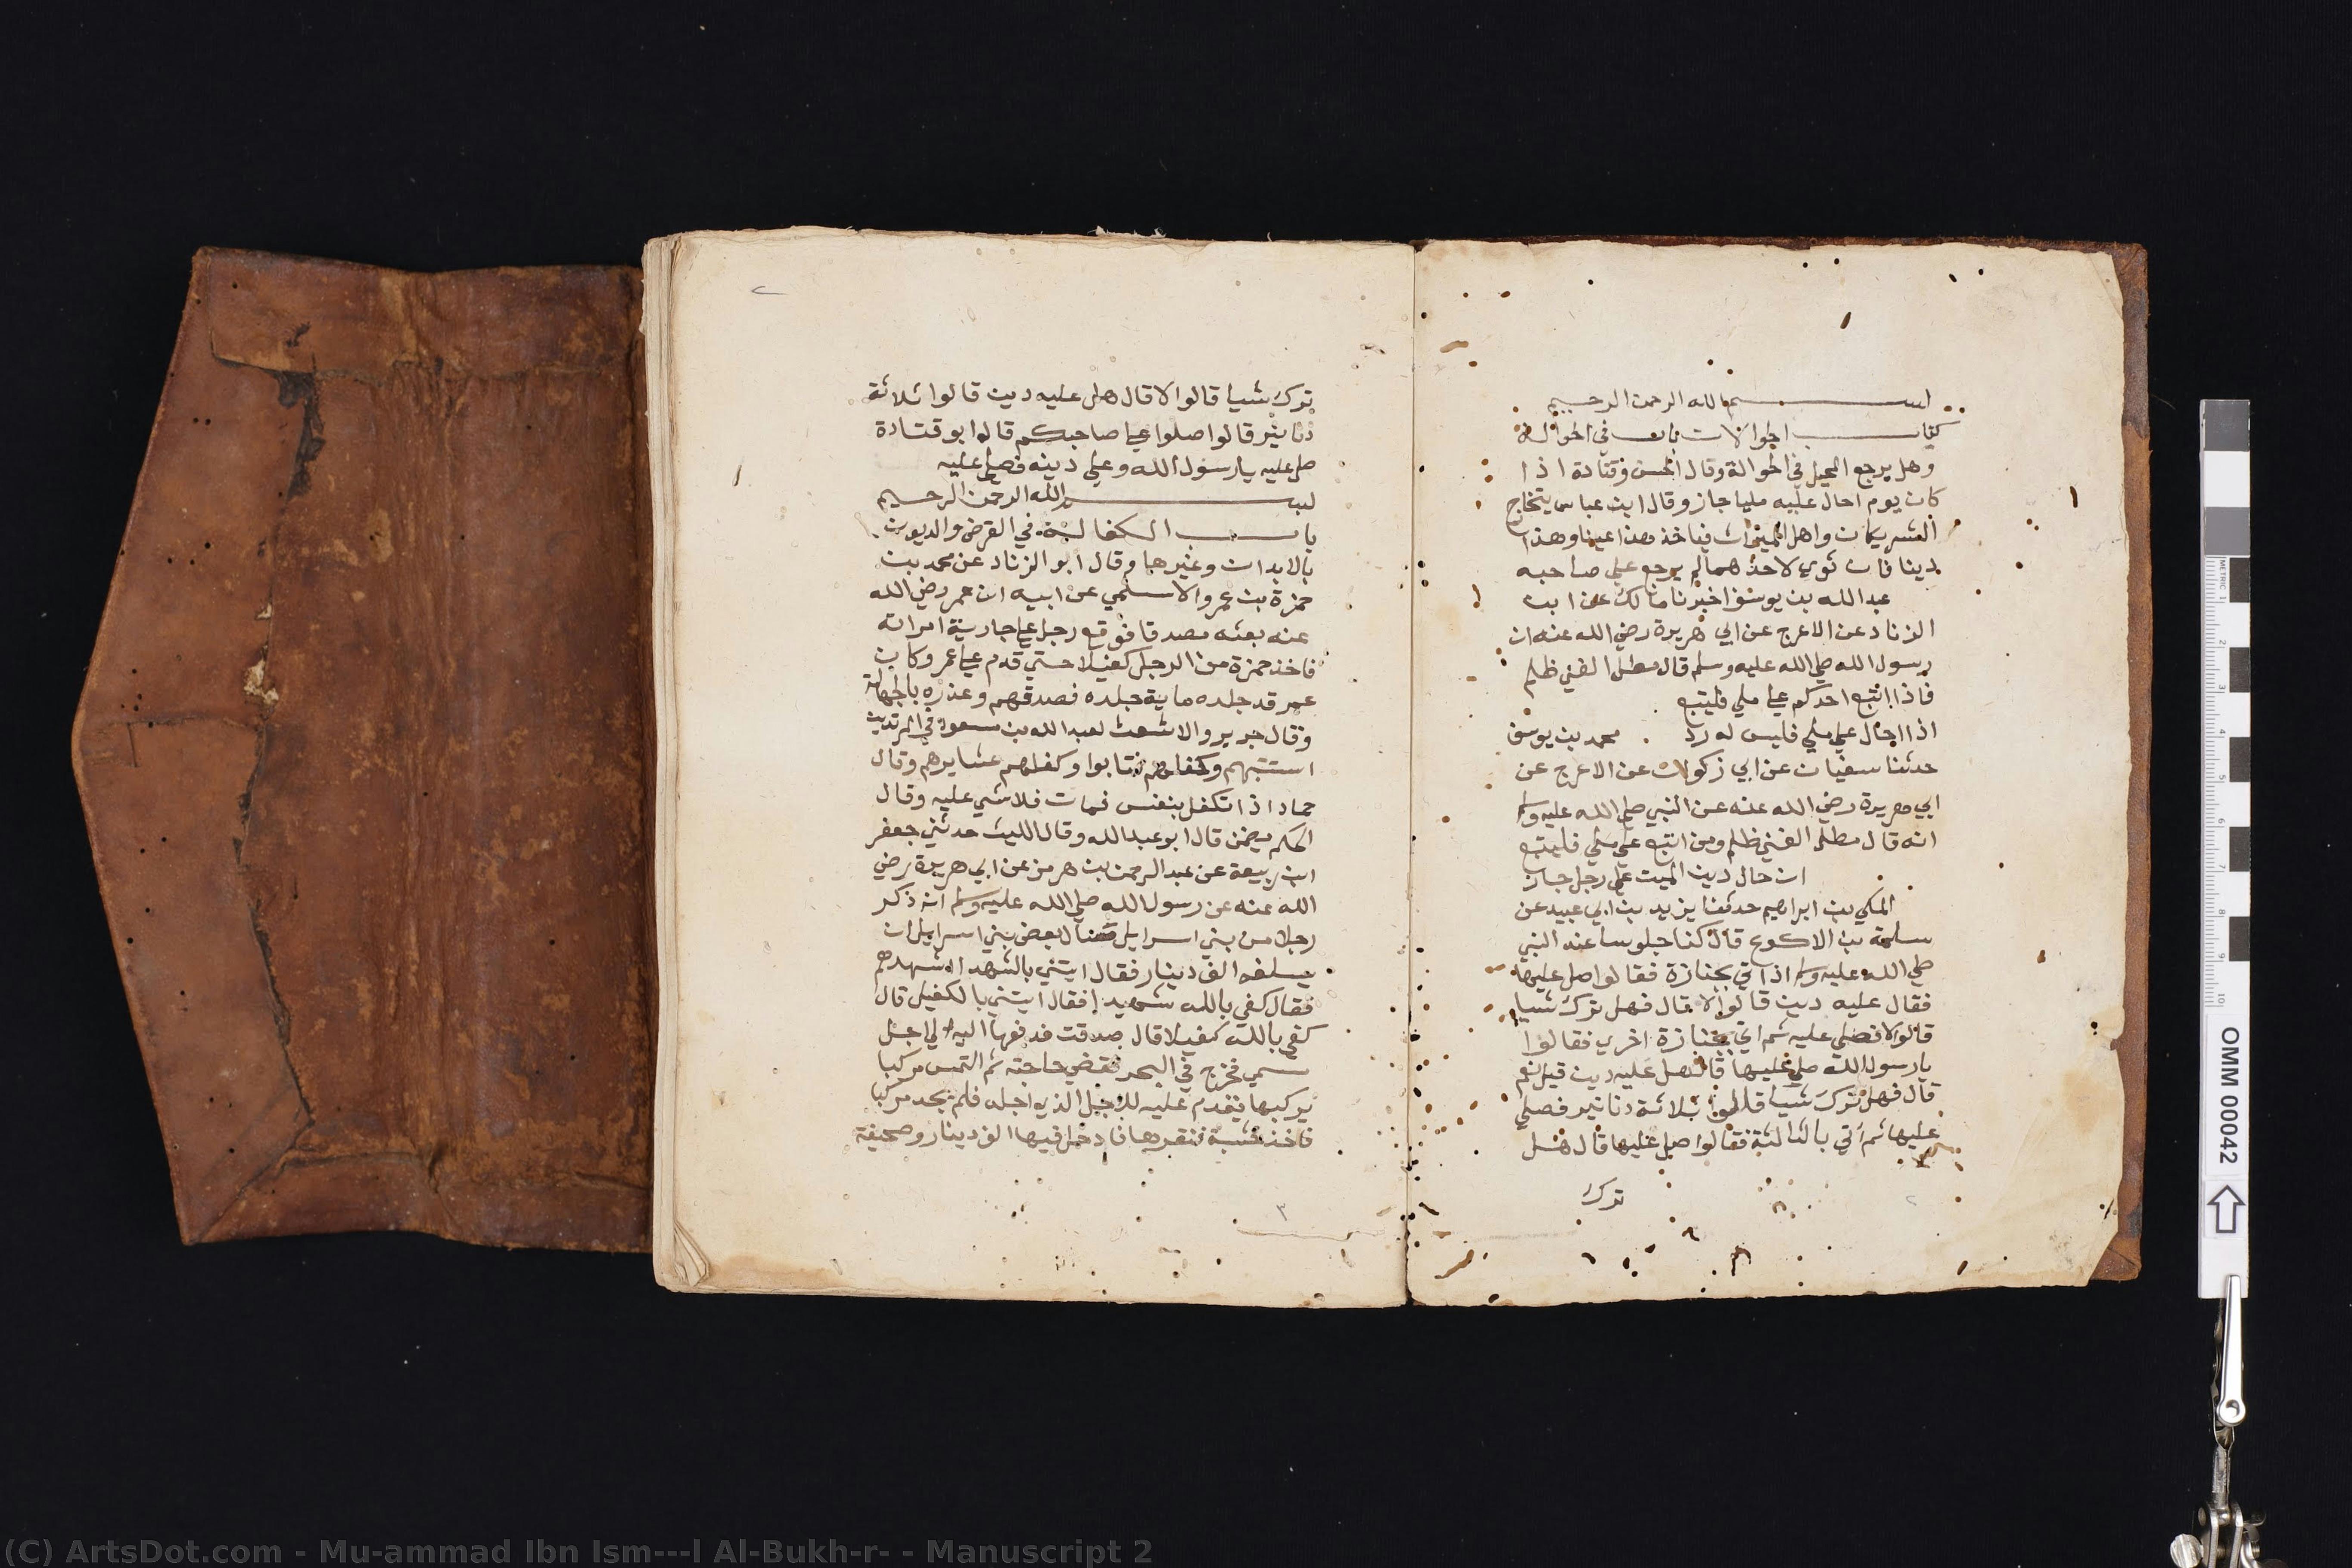 بسم الله الرحمن الرحيم
كتاب الحوالات باب في الحوالة
وهل يرجع المحيل في الحوالة وقال الحسن وقتادة اذا
كان يوم احال عليه مليا جاز وقال ابن عباس يتخارج
الشريكان واهل الميراث فياخذ هذا عينا وهذا
دينا فان توي لاحدهما لم يرجع علي صاحبه
عبد الله بن يوسف اخبرنا مالك عن ابي
الزناد عن الاعرج عن ابي هريرة رضي الله عنه ان
رسول الله صلي الله عليه وسلم قال مطل الغني ظلم
فاذا اتبع احدكم علي ملي فليتبع
اذا احال علي ملي فليس له رد محمد بن يوسف
حدثنا سفيان عن ابي ذكوان عن الاعرج عن
ابي هريرة رضي الله عنه عن النبي صلي الله عليه وسلم
انه قال مطل الغني ظلم ومن اتبع علي ملي فليتبع
ان حال دين الميت علي رجل جاز
المكي بن ابراهيم حدثنا يزيد بن ابي عبيد عن
سلمة بن الاكوع قال كنا جلوسا عند النبي
صلي الله عليه وسلم اذ اتي بجنازة فقالوا صل عليها
فقال عليه دين قالوا لا قال فهل ترك شيا
قالوا لا فصلي عليه ثم اتي بجنازة اخري فقالوا
يا رسول الله صل عليها قال هل عليه دين قيل نعم
قال فهل ترك شيا قالوا ثلاثة دنانير فصلي
عليها ثم اتي بالثالثة فقالوا صل عليها قال هل
ترك
٢
ترك شيا قالوا لا قال هل عليه دين قالوا ثلاثة
دنانير قالوا صلوا علي صاحبكم قال ابو قتادة
صل عليه يا رسول الله وعلي دينه فصلي عليه
بسم الله الرحمن الرحيم
باب الكفالة في القرض والديون
بالابدان وغيرها وقال ابو الزناد عن محمد بن
حمزة بن عمرو الاسلمي عن ابيه ان عمر رضي الله
عنه بعثه مصدقا فوقع رجل علي جارية امراته
فاخذ حمزة من الرجل كفيلا حتي قدم علي عمر وكان
عمر قد جلده ماية جلده فصدقهم وعذره بالجهالة
وقال جرير والاشعث لعبد الله بن مسعود في المرتدين
استتبهم وكفلهم فتابوا وكفلهم عشايرهم وقال
حماد اذا تكفل بنفس فمات فلا شي عليه وقال
الحكم يضمن قال ابو عبد الله وقال الليث حدثني جعفر
ابن ربيعة عن عبد الرحمن بن هرمز عن ابي هريرة رضي
الله عنه عن رسول الله صلي الله عليه وسلم انه ذكر
رجلا من بني اسرايل بعض بني اسرايل ان
يسلفه الف دينار فقال ايتني بالشهداء اشهدهم
فقال كفي بالله شهيدا فقال ايتني بالكفيل قال
كفي بالله كفيلا قال صدقت فدفعها اليه الي اجل
مسمي فخرج في البحر فقضي حاجته ثم التمس مركبا
يركبها يقدم عليه للاجل الذي اجله فلم يجد مركبا
فاخذ خشبة فنقرها فادخل فيها الف دينار وصحيفة
٣
METRIC 1 2 3 4 5 6 7 8 9 10
OMM 00042
(C) ArtsDot.com - Mu-ammad Ibn Ism---l Al-Bukh-r- - Manuscript 2